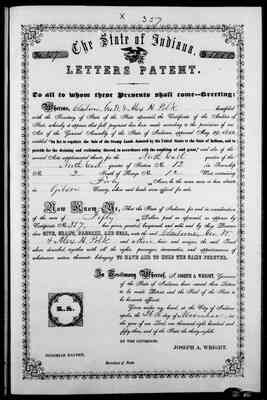 x 357
The State of Indiana,
LETTERS PATENT.
To all to whom these Presents shall come—Greeting:
Whereas, & Alex H. Polk
with the Secretary of State of the State aforesaid, the Certificate of the Auditor of
State, whereby it appears that full payment has been made according to the provisions of an
Act of the General Assembly of the State of Indiana, approved May 29, 1852,
entitled "An Act to regulate the Sale of the Swamp Lands donated by the United States to the State of Indiana, and to
provide for the draining and reclaiming thereof, in accordance with the conditions of said grant;" and acts of the
amend Acts supplemental thereto, for the North East quarter of the
North West quarter of Section No. 12 in Township
No. 2 of Range No. 12 West containing
Forty Acres, be the same more or less situate
in Gibson County, when said lands were offered for sale.
Now Know Ye, That the State of Indiana, for and in consideration
of the sum of Fifty Dollars, paid as aforesaid, as appears by
Certificate No. 357, has given, granted, bargained and sold, and by these Presents
does GIVE, GRANT, BARGAIN, AND SELL, unto the said
& Alex H. Polk and to heirs and assigns, the said Tract
above described, together with all the rights, privileges, immunities, and appurtenances of
whatsoever nature thereunto belonging, TO HAVE AND TO HOLD THE SAME FOREVER.
In Testimony Whereof, I, JOSEPH A. WRIGHT, Governor
of the State of Indiana, have caused these Letters
to be made Patent, and the Seal of the State to
be hereunto affixed.
Given under my hand, at the City of Indiana-
polis, the day of November in
the year of our Lord, one thousand eight hundred and
fifty three, and of the State the thirty eighth.
BY THE GOVERNOR.
JOSEPH A. WRIGHT.
L.S.
NEHEMIAH HAYDEN,
Secretary of State